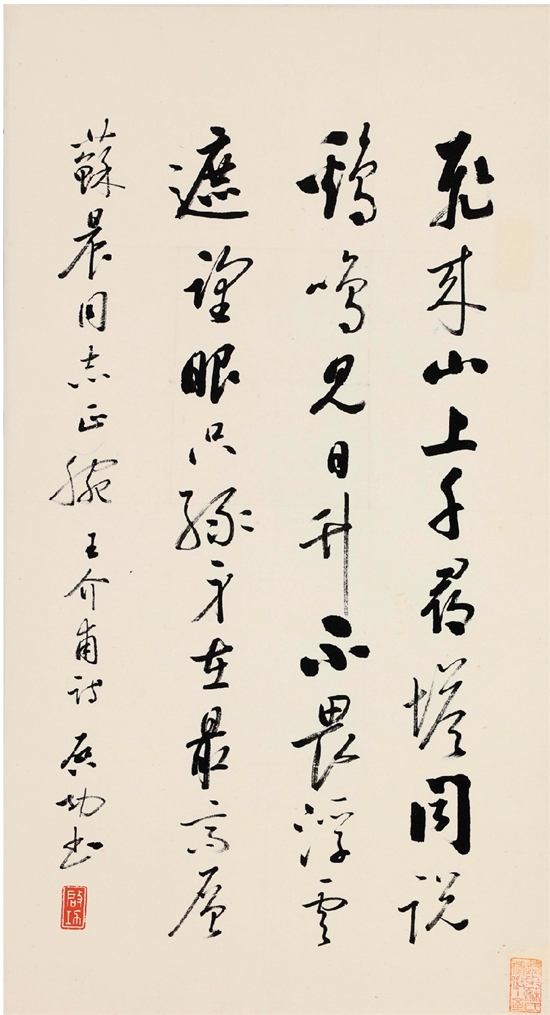 飛來山上千尋塔聞説
鷄鳴見日升不畏浮雲
遮望眼只緣身在最高層
蘇晨同志正腕 王介甫詩 啓功書
啟功